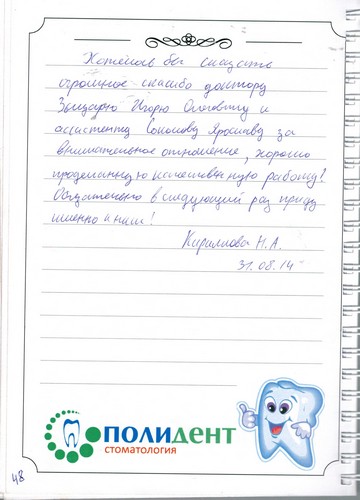 Хотелось бы сказать
огромное спасибо доктору
Игорю Олеговичу и
ассистенту Соколову Ярославу за
внимательное отношение, хорошо
проделанную качественную работу!
Обязательно в следующий раз приду
именно к ним!
Кириллова Н.А.
31.08.14
ПОЛИДЕНТ
СТОМАТОЛОГИЯ
48